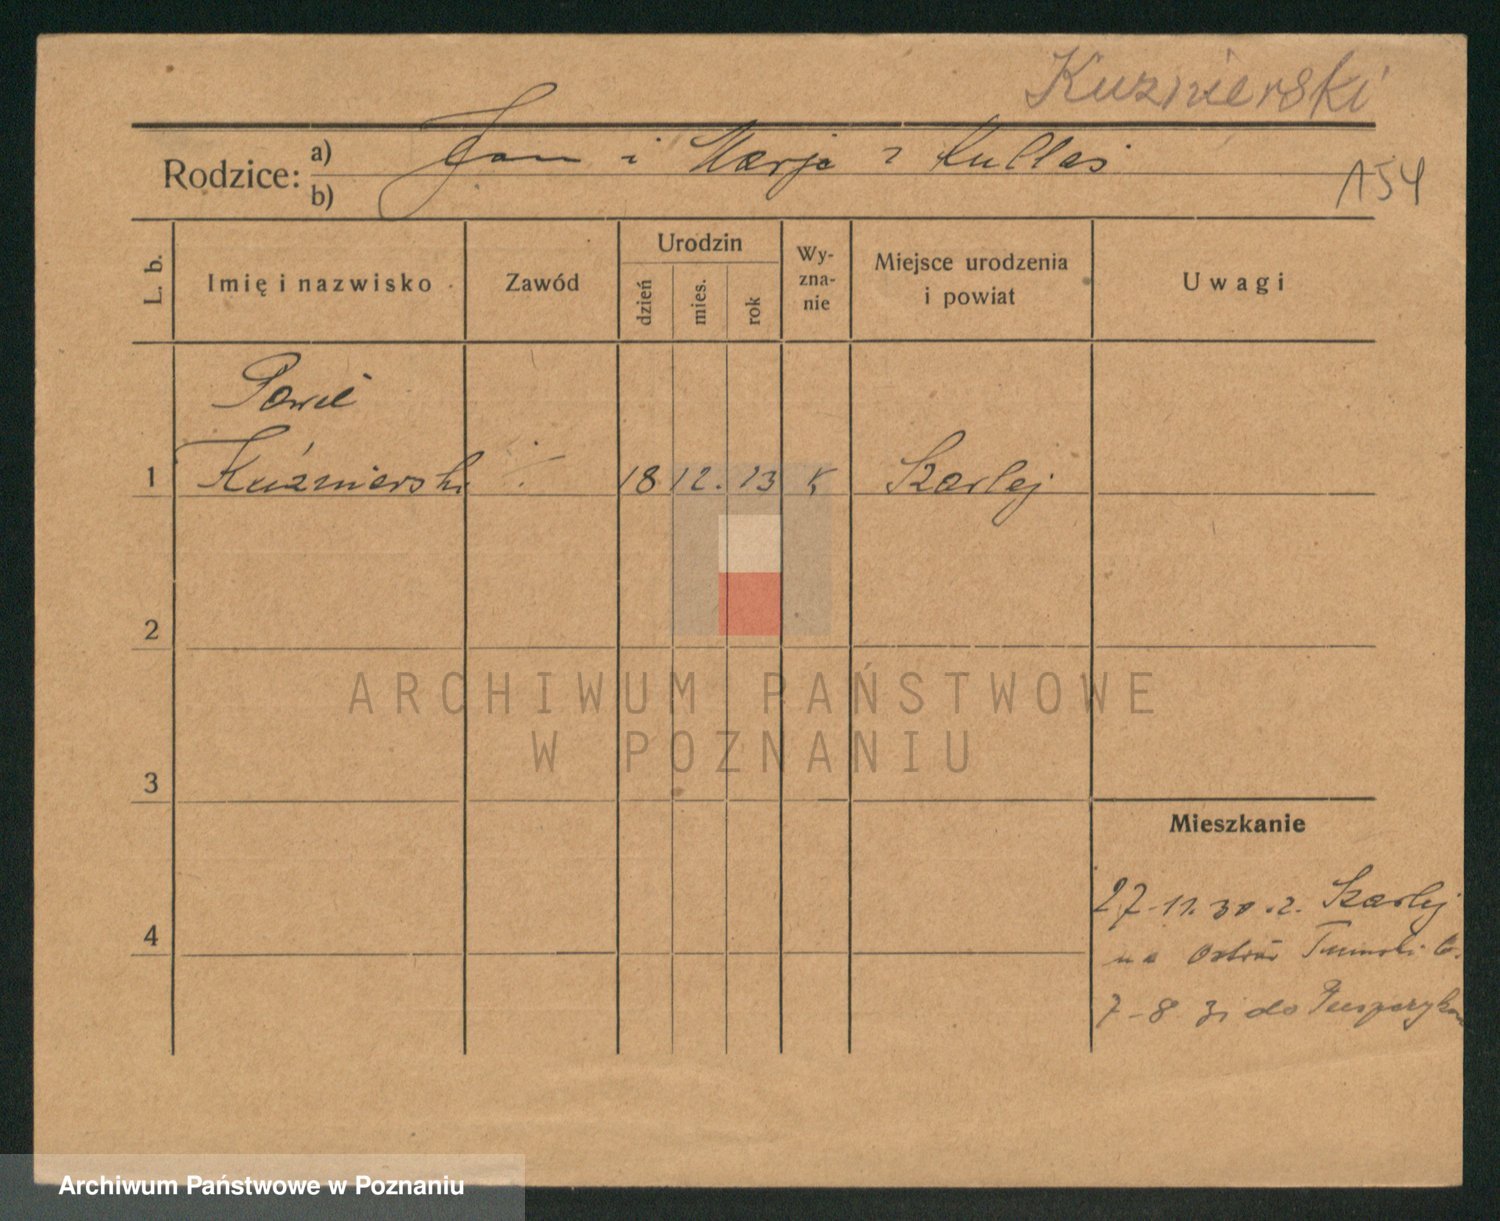 Kuznierski
Rodzice: a) Jan i Marja z Kullas
b)
154
L. b.
Imię i nazwisko
Zawód
Urodzin
dzień
mies.
rok
Wy-
zna-
nie
Miejsce urodzenia
i powiat
Uwagi
Paweł
1 Kuźnierski ./. 18 12. 13 K Szarlej
2
3
4
Mieszkanie
27-11.30.z. Szarlej
na Ostrów
7-8 31 do
ARCHIWUM PAŃSTWOWE
W POZNANIU
Archiwum Państwowe w Poznaniu